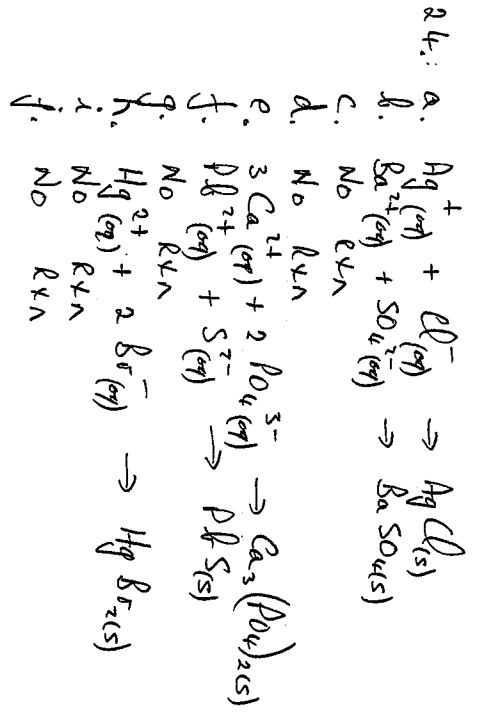 24.: a. Ag⁺(aq) + Cl⁻(aq) → AgCl(s)
b. Ba²⁺(aq) + SO₄²⁻(aq) → BaSO₄(s)
c. No Rxn
d. No Rxn
e. 3 Ca²⁺(aq) + 2 PO₄³⁻(aq) → Ca₃(PO₄)₂(s)
f. Pb²⁺(aq) + S²⁻(aq) → PbS(s)
g. No Rxn
h. Hg²⁺(aq) + 2 Br⁻(aq) → HgBr₂(s)
i. No Rxn
j. No Rxn